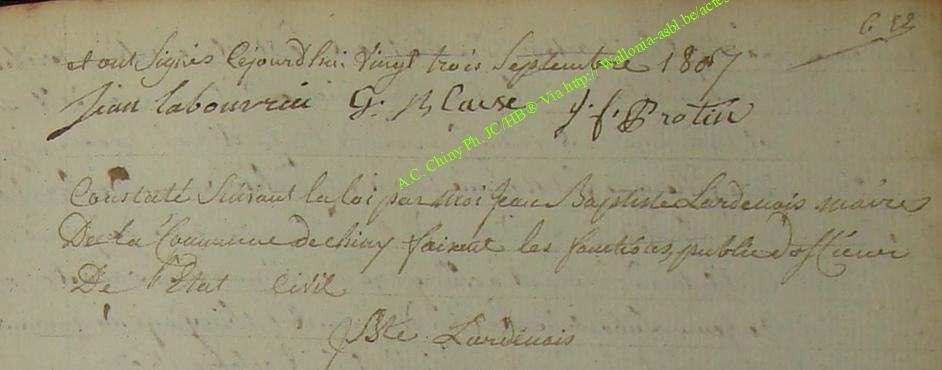 6. 12
et ont Signés Cejourdhui vingt trois Septembre 1807
Jean labouverie G. Blaise J. f. Protin
A.C. Chiny Ph. JC/HB® Via http://Wallonia-asbl.be/actes
Constaté Suivant la loi par moi Jean Baptiste Lardenois maires
De la Commune de chiny faisant les fonctiones publie d'officier
De l'Etat Civil
JBte Lardenois